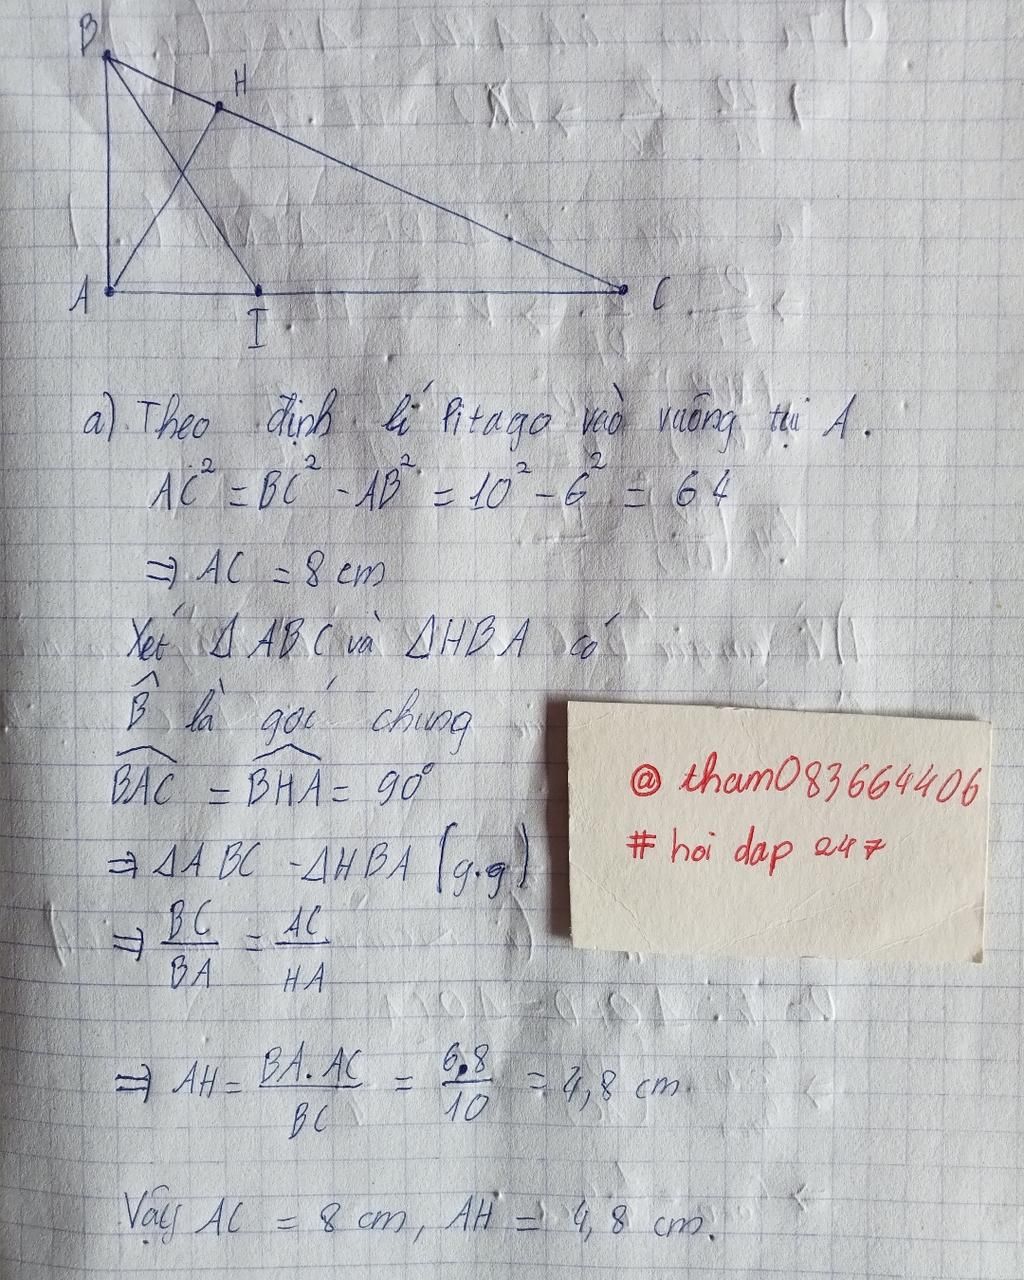 B
H
A
I
C
a) Theo định lí Pitago vào vuông tại A.
AC² = BC² - AB² = 10² - 6² = 64
⇒ AC = 8 cm
Xét Δ ABC và ΔHBA có
B̂ là góc chung
\widehat{BAC} = \widehat{BHA} = 90°
⇒ ΔABC - ΔHBA (g.g)
⇒ BC/BA = AC/HA
⇒ AH = BA.AC/BC = 6.8/10 = 4,8 cm.
Vậy AC = 8 cm, AH = 4,8 cm.
@ tham083664406
# hoi dap 247